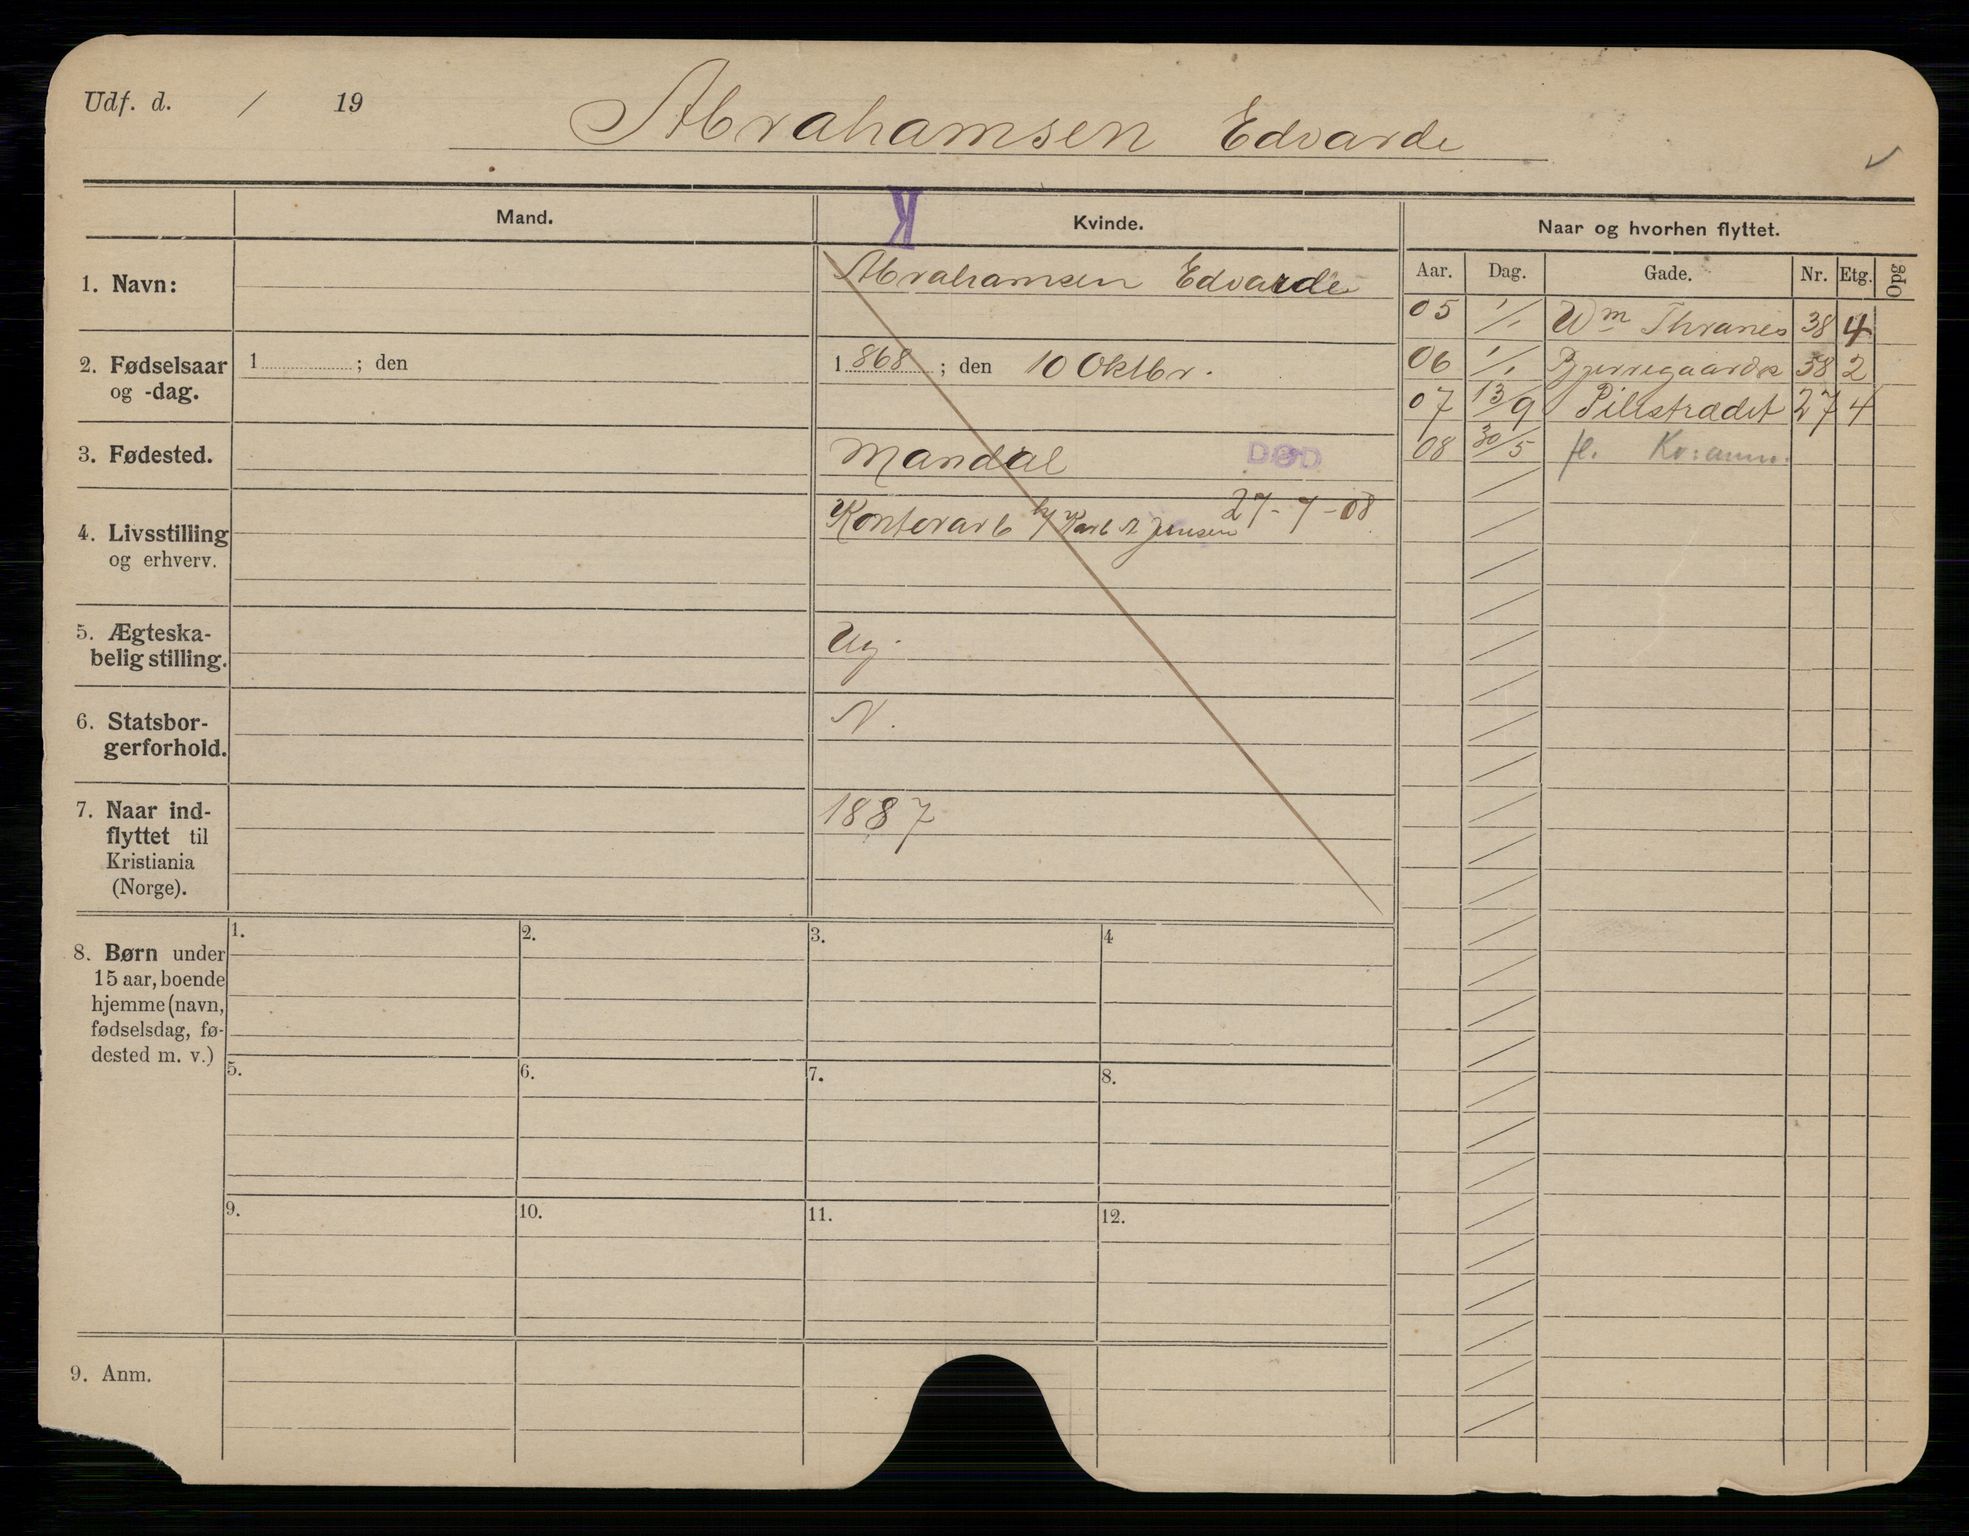 Udf. d. / 19
Abrahamsen Edvarde
K
Mand.
Kvinde.
Naar og hvorhen flyttet.
Aar. Dag. Gade. Nr. Etg. Opg
1. Navn:
Abrahamsen Edvarde
05 1/1 Wm Thranes 38 4
06 1/1 Bjerregaards 38 2
07 13/9 Pilestrædet 27 4
08 30/5 fl.
2. Fødselsaar
og -dag.
1 ; den
1868 ; den 10 Oktbr.
3. Fødested.
Mandal
DØD
27-7-08
4. Livsstilling
og erhverv.
Kontorarb h/ Karl A Jensen
5. Ægteska-
belig stilling.
Ug.
6. Statsbor-
gerforhold.
N.
7. Naar ind-
flyttet til
Kristiania
(Norge).
1887
8. Børn under
15 aar, boende
hjemme (navn,
fødselsdag, fø-
dested m. v.)
1. 2. 3. 4
5. 6. 7. 8.
9. 10. 11. 12.
9. Anm.